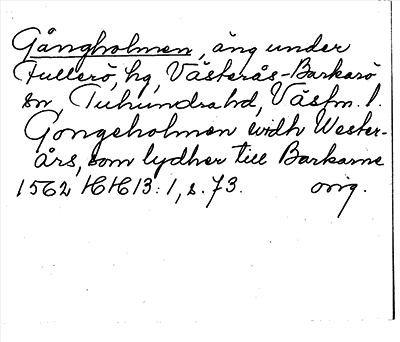 Gångholmen, äng under
Fullerö, hg, Västerås-Barkarö
sn, Tuhundra hd, Västm. l.
Gongeholmen widh Wester-
års, som lydher till Barkarne
1562 HH 13:1, s. 73. orig.